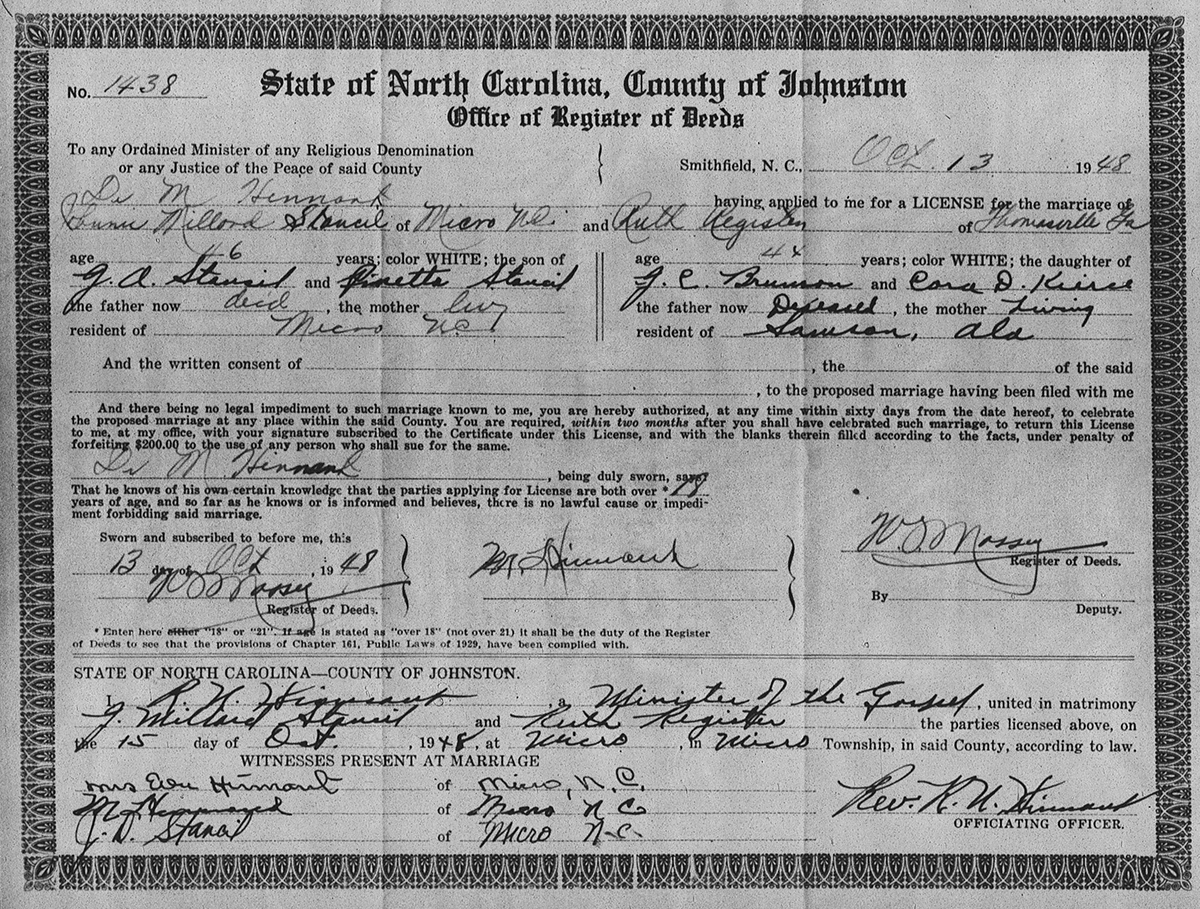 No. 1438 State of North Carolina, County of Johnston
Office of Register of Deeds
To any Ordained Minister of any Religious Denomination
or any Justice of the Peace of said County
Smithfield, N. C., Oct. 13 1948
Dr M Hinnant having applied to me for a LICENSE for the marriage of
Millard Stancil of Micro N.C. and Ruth Register of Thomasville Ga
age 46 years; color WHITE; the son of
J. A. Stancil and Stancil
the father now decd, the mother liv
resident of Micro N.C.
age 44 years; color WHITE; the daughter of
J. C. Brunson and Cora D. Kierce
the father now Deceased, the mother Living
resident of Samson, Ala
And the written consent of , the of the said
, to the proposed marriage having been filed with me
And there being no legal impediment to such marriage known to me, you are hereby authorized, at any time within sixty days from the date hereof, to celebrate
the proposed marriage at any place within the said County. You are required, within two months after you shall have celebrated such marriage, to return this License
to me, at my office, with your signature subscribed to the Certificate under this License, and with the blanks therein filled according to the facts, under penalty of
forfeiting $200.00 to the use of any person who shall sue for the same.
Dr M Hinnant, being duly sworn, says:
That he knows of his own certain knowledge that the parties applying for License are both over * 18
years of age, and so far as he knows or is informed and believes, there is no lawful cause or impedi-
ment forbidding said marriage.
Sworn and subscribed to before me, this
13 day of Oct, 1948
Massey
Register of Deeds.
M. Hinnant
Massey
Register of Deeds.
By
Deputy.
* Enter here either "18" or "21". If age is stated as "over 18" (not over 21) it shall be the duty of the Register
of Deeds to see that the provisions of Chapter 161, Public Laws of 1929, have been complied with.
STATE OF NORTH CAROLINA—COUNTY OF JOHNSTON.
I, R. N. Hinnant, a Minister of the Gospel, united in matrimony
J. Millard Stancil and Ruth Register the parties licensed above, on
the 15 day of Oct., 1948, at Micro, in Micro Township, in said County, according to law.
WITNESSES PRESENT AT MARRIAGE
Mrs Hinnant of Micro, N.C.
M. Hinnant of Micro N C
J. D. Stancil of Micro N.C.
Rev. R. N. Hinnant
OFFICIATING OFFICER.